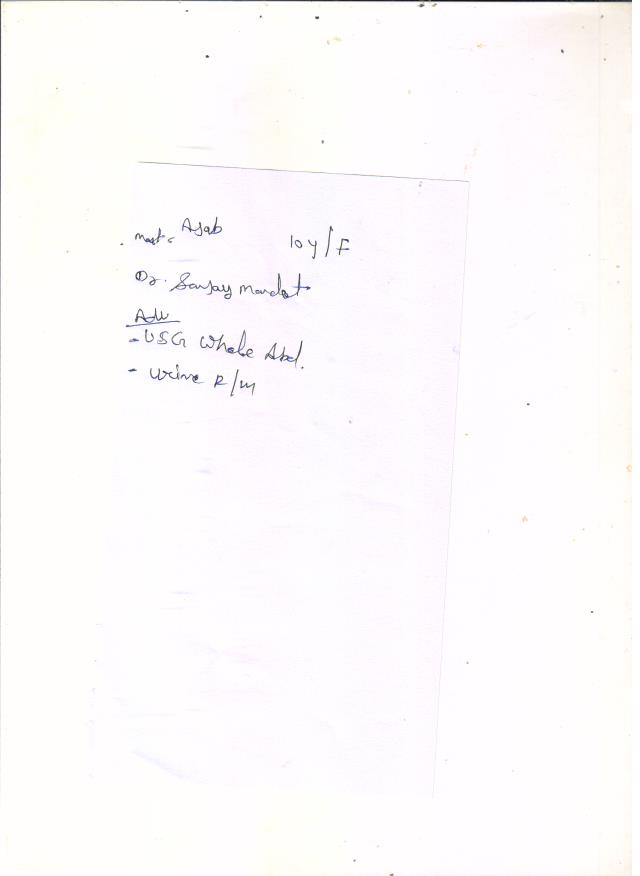 Mast. Ajab 10 y/F
Dr. Sanjay Mandot
Adv
- USG Whole Abd.
- Urine R/M